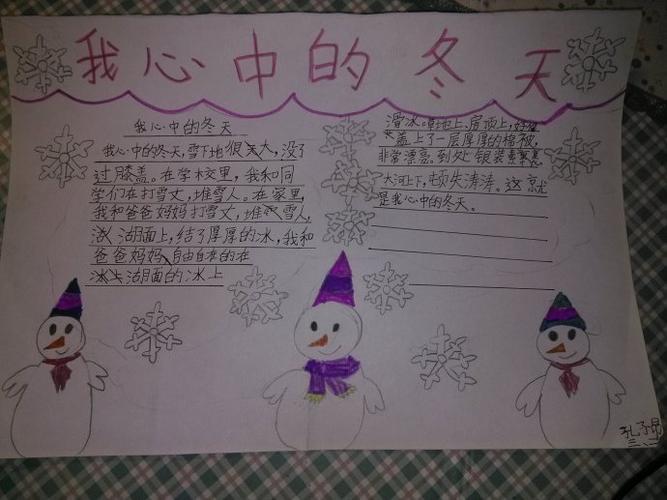 我心中的冬天
我心中的冬天
我心中的冬天,雪下地很大,没了
过膝盖。在学校里,我和同
学们在打雪丈,堆雪人。在家里,
我和爸爸妈妈打雪丈,堆雪人,
湖面上,结了厚厚的冰,我和
爸爸妈妈自由自在的在
湖面的冰上
滑冰。地上,房顶上,好像
盖上了一层厚厚的棉被,
非常漂亮。到处银装素裹
大河上下,顿失涛涛。这就
是我心中的冬天。
三、二